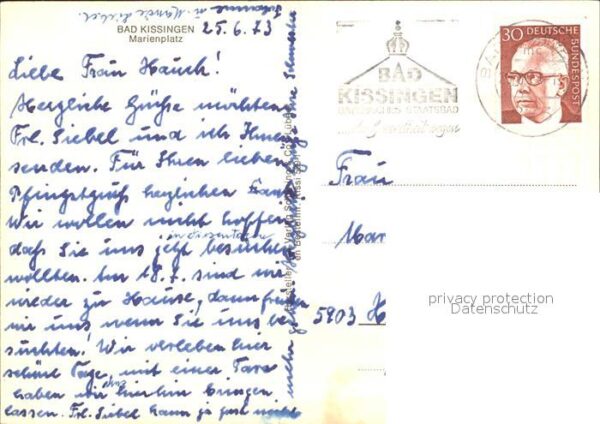 BAD KISSINGEN
Marienplatz
25.6.73
Liebe Frau Hauch!
Herzliche Grüße möchten
Frl. Siebel und ich Ihnen
senden. Für Ihren lieben
Pfingstgruß herzlichen Dank
Wir wollen nicht hoffen
daß Sie uns jetzt besuchen
in diesen Tagen
wollten. Am 18.7. sind wir
wieder zu Hause, dann freuen
wir uns wenn Sie uns be
suchten! Wir verleben hier
schöne Tage, mit einer Taxe
haben wir uns hierhin bringen
lassen. Frl. Siebel kann ja gar nicht
mehr
Ihre
BAD
KISSINGEN
BAYERISCHES STAATSBAD
30
DEUTSCHE
BUNDESPOST
Frau
Mar
5903 H
privacy protection
Datenschutz